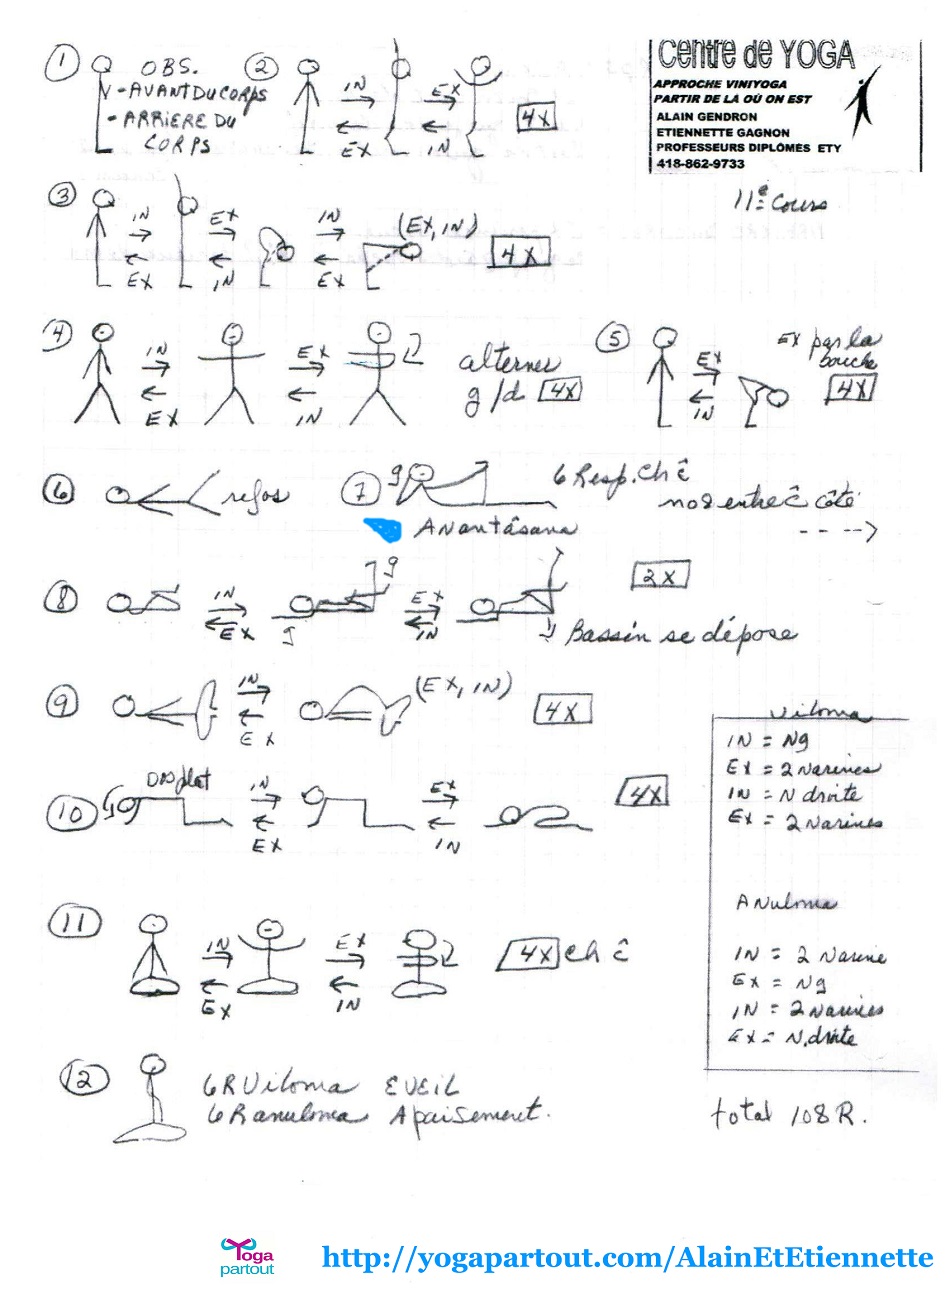 Centre de YOGA
APPROCHE VINIYOGA
PARTIR DE LÀ OÙ ON EST
ALAIN GENDRON
ETIENNETTE GAGNON
PROFESSEURS DIPLÔMÉS ETY
418-862-9733
11e Cours
1 OBS.
- AVANT DU CORPS
- ARRIERE DU
CORPS
2 IN EX
EX IN 4X
3 IN EX IN (EX, IN)
EX IN EX 4X
4 IN EX
EX IN
alternes
g/d 4X
5 EX
IN
EX par la
bouche
4X
6 repos
7 g 6 Resp. Ch ĉ
nos entre ĉ côté
Anantâsana
---->
8 IN g EX 2X
EX g IN Bassin se dépose
9 IN (EX, IN) 4X
EX
10 Dos plat IN EX 4X
EX IN
11 IN EX 4X Ch ĉ
EX IN
12 6R Viloma EVEIL
6R anuloma Apaisement.
Viloma
IN = Ng
EX = 2 Narines
IN = N droite
EX = 2 Narines
Anuloma
IN = 2 Narine
EX = Ng
IN = 2 Narines
EX = N. droite
total 108 R.
Yoga
partout
http://yogapartout.com/AlainEtEtiennette